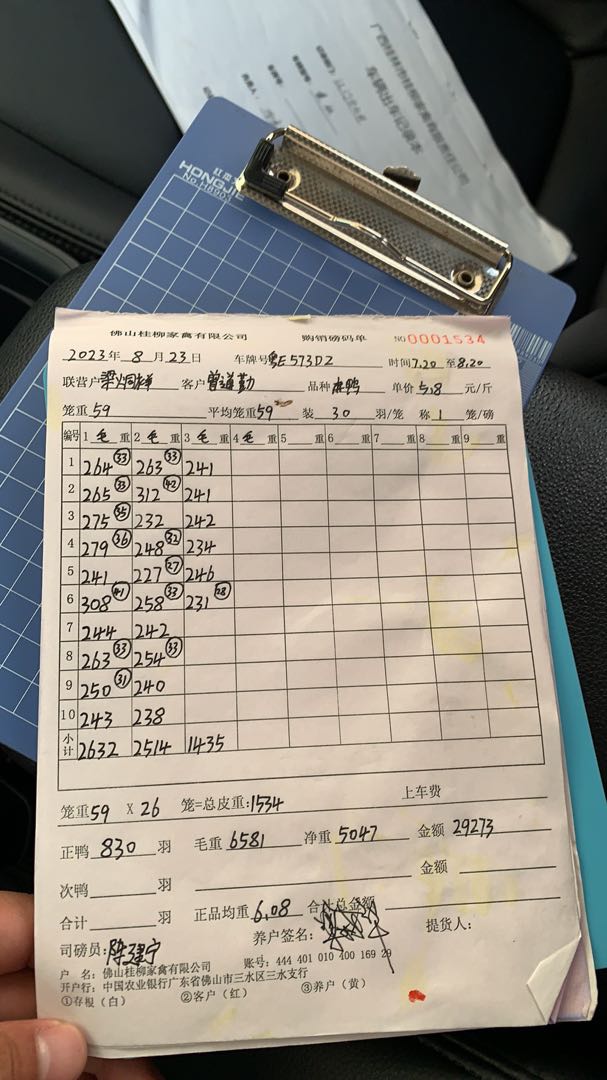 广西桂林市桂柳家禽有限责任公司
车辆出车记录本
HONGJIE
佛山桂柳家禽有限公司 购销磅码单 NO 0001534
2023年 8月 23日 车牌号 粤E573DZ 时间7.20 至8.20
联营户 客户 曾道勤 品种 鸭 单价 5.8 元/斤
笼重 59 平均笼重 59 装 30 羽/笼 称 1 笼/磅
编号 1 毛 重 2 毛 重 3 毛 重 4 毛 重 5 重 6 重 7 重 8 重 9 重
1 264 ㉝ 263 ㉝ 241
2 265 ㉝ 312 ㊷ 241
3 275 ㉟ 232 242
4 279 ㊱ 248 ㉜ 234
5 241 227 ㉗ 246
6 308 ㊶ 258 ㉝ 231 ㉘
7 244 242
8 263 ㉝ 254 ㉝
9 250 ㉛ 240
10 243 238
小计 2632 2514 1435
笼重 59 X 26 笼=总皮重:1534 上车费
正鸭 830 羽 毛重 6581 净重 5047 金额 29273
次鸭 羽 金额
合计 羽 正品均重 6.08 合计总金额
司磅员: 陈建宁 养户签名: 提货人:
户 名: 佛山桂柳家禽有限公司 账号: 444 401 010 400 169 29
开户行: 中国农业银行广东省佛山市三水区三水支行
①存根(白) ②客户(红) ③养户(黄)